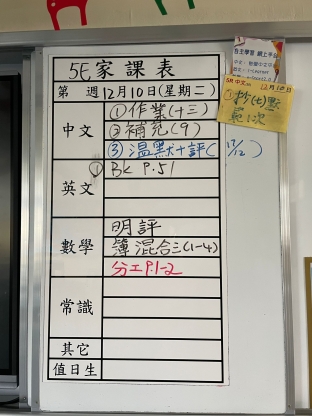 5E家課表
第 週12月10日(星期二)
中文
①作業(十三)
②補充(9)
③温默大+評(17/12)
英文
①BK P.51
數學
明評
簿混合三(1-4)
分工P.1-2
常識
其它
值日生
自主學習 網上平台
5R 中文
12月10日
抄(七)默
範1次